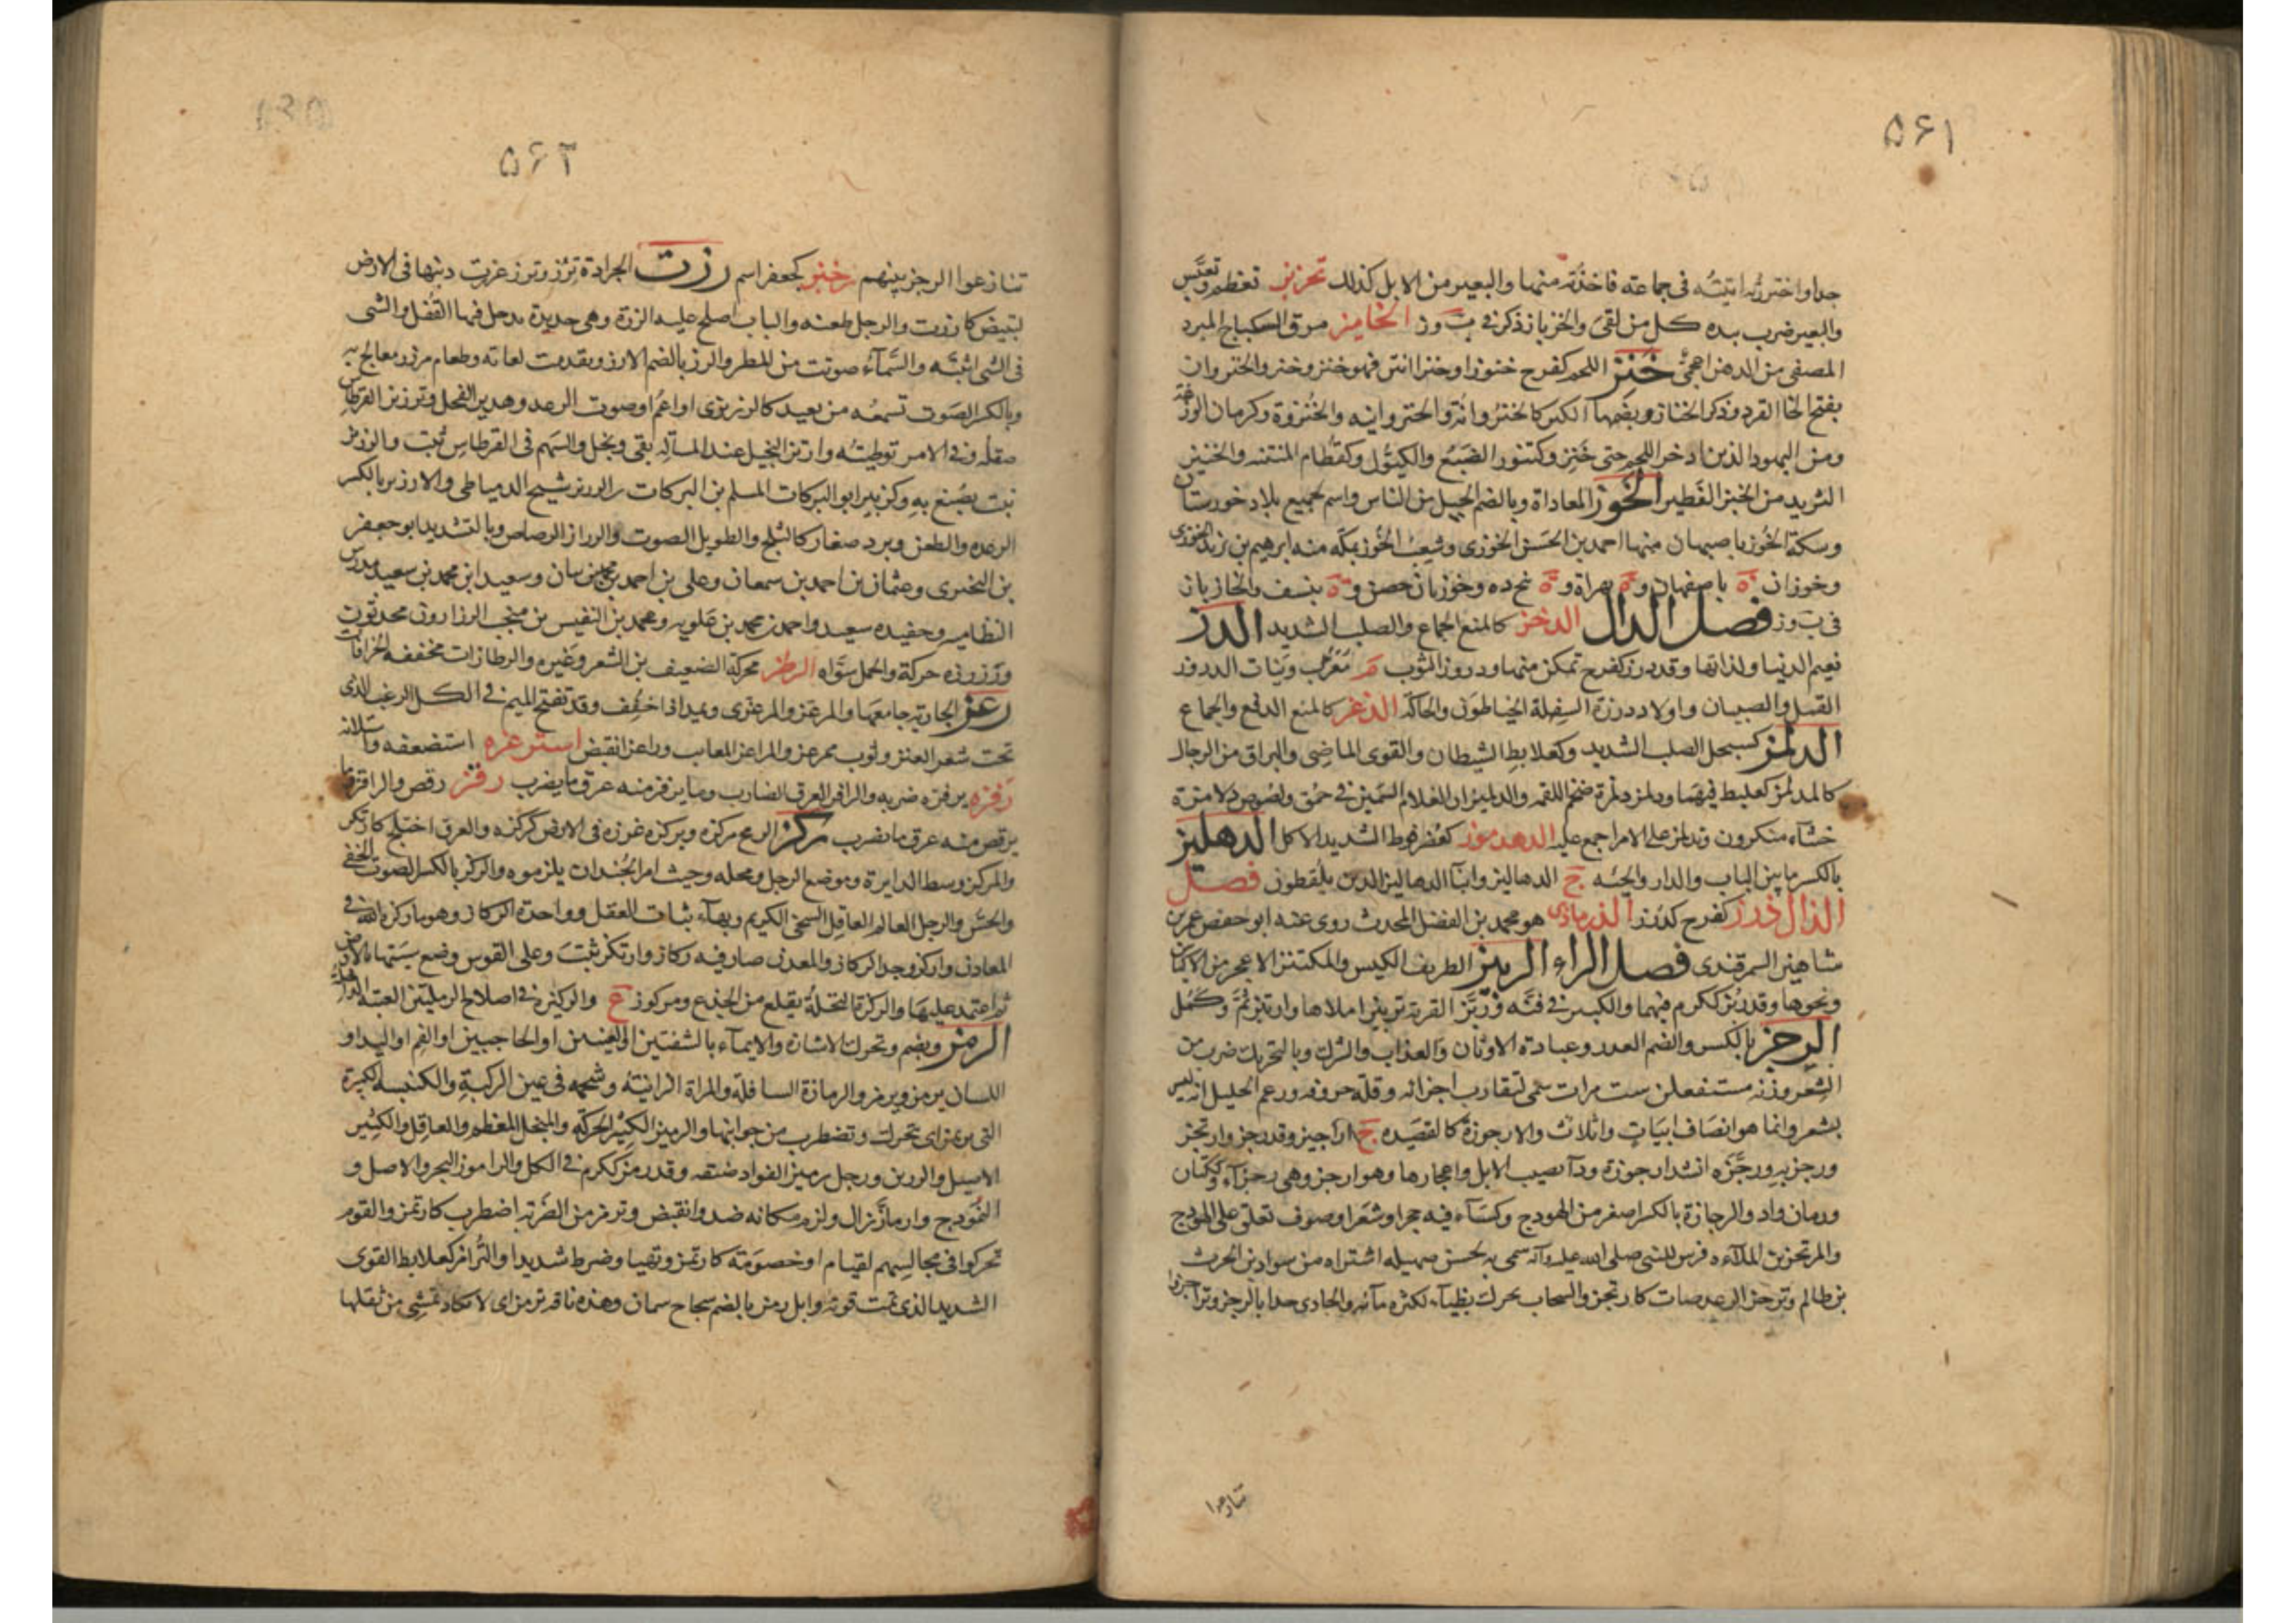 ۵۶۱
جدا واختززته اتيته فى جماعة فاخذته منها والبعير من الابل كذلك تخزيز تعظم وتعبس
والبعير ضرب بيده كل من لقى والخزباز ذكر فى ب وز الخاميز مرق السكباج المبرد
المصفى من الدهن اعجمى خنز اللحم كفرح خنوزا وخنزا انتن فهو خنز وخنز والخنزوان
بفتح الخا القرد وذكر الخناز وبضمها الكبر كالخنزوانة والخنزوانية والخنزوة وكرمان الوزغة
ومن اليهود الذين ادخر اللحم حتى خنز وكتنور الضبع والكيول وكقطام المنتنة والخنيز
الثريد من الخبز الفطير الخوز المعاداة وبالضم الجيل من الناس واسم لجميع بلاد خورستان
وسكة الخوز باصبهان منها احمد بن الحسن الخوزى وشعب الخوز بمكه منه ابرهيم بن يزيد الخوزى
وخوزان ة باصفهان وة بهراة وة بنجده وخوزيان حصن وة بنسف والخازباز
فى ب وز فصل الدال الدخز كالمنع الجماع والصلب الشديد الدرز
نعيم الدنيا ولذاتها وقد درز كفرح تمكن منها ودروز الثوب م معرب وبنات الدروز
القمل والصيبان واولاد درزة السفلة الخياطون والحاكة الدعز كالمنع الدفع والجماع
الدلمز كسبحل الصلب الشديد وكعلابط الشيطان والقوى الماضى والبراق من الرجال
كالمدلمز كعلبط فيهما ودلمز دلمزة ضخم اللقم والدليمزان الغلام السمين فى حمق ولصوص دلامزة
خشاء منكرون وتدلمز على الامر اجمع عليه الدهدموز كعضرفوط الشديد الاكل الدهليز
بالكسر ما بين الباب والدار والجيئه ج الدهاليز وابنا الدهاليز الذين يلقطون فصل
الذال ذرز كفرح كدرز الذرمازى هو محمد بن الفضل المحدث روى عنه ابو حفص عمر بن
شاهين السمرقندى فصل الراء الربيز الظريف الكيس والمكتنز الاعجر من الاكياس
ونحوها وقد ربز ككرم فيهما والكبير فى فنه وربز القربة تربيزا ملاها وارتبز تم وكمل
الرجز بالكسر والضم القذر وعبادة الاوثان والعذاب والشرك وبالتحريك ضرب من
الشعر وزنه مستفعلن ست مرات سمى لتقارب اجزائه وقلة حروفه وزعم الخليل انه ليس
بشعر وانما هو انصاف ابيات واثلاث والارجوزة كالقصيده ج اراجيز وقد رجز وارتجز
ورجز به ورجزه انشد ارجوزة ودآ يصيب الابل واعجازها وهو ارجز وهى رجزآء وككتان
ورمان واد والرجازة بالكسر اصغر من الهودج وكسآء فيه حجر او شعر او صوف تعلق على الهودج
والمرتجز بن الملاءة فرس للنبى صلى الله عليه وآله سمى به لحسن صهيله اشتراه من سواد بن الحرث
بن ظالم وترجز الرعد صات كارتجز والسحاب تحرك بطيآ لكثرة مآئه والحادى حدا بالرجز وتراجزوا
تنازعوا
۵۶۲
تنازعوا الرجز بينهم رخبز كجعفر اسم رزت الجرادة ترز وترز غرزت ذنبها فى الارض
لتبيض كارزت والرجل طعنه والباب اصلح عليه الرزة وهى حديدة يدخل فيها القفل والشى
فى الشى اثبته والسماء صوتت من المطر والرز بالضم الارز وتقدمت لغاته وطعام مرزز معالج به
وبالكسر الصوت تسمعه من بعيد كالرزيزى او اعم او صوت الرعد وهدير الفحل وترزيز القرطاس
صقله وفى الامر توطيئه وارتز البخيل عند المسألة بقى وبخل والسهم فى القرطاس ثبت والرزيز
نبت يصبغ به وكزبير ابو البركات المسلم بن البركات بن الرزيز شيخ الدمياطى والارزيز بالكسر
الرعده والطعن وبرد صغار كالثلج والطويل الصوت والرزاز الرصاص وبالتشديد ابو جعفر
بن البخترى وعثمان بن احمد بن سمعان وعلى بن احمد بن محمد بن بيان وسعيد ابن محمد بن سعيد مدرس
النظامية وحفيده سعيد واحمد بن محمد بن علويه ومحمد بن النفيس بن منجب الرزازون محدثون
ورزرزه حركه والحمل سواه الرطز محركة الضعيف من الشعر وغيره والرطازات مخففة الخرافات
رعز الجارية جامعها والمرعز والمرعزى ويمد اذا خفف وقد تفتح الميم فى الكل الزغب الذى
تحت شعر العنز وثوب ممرعز والمراعز المعاب وراعز انقبض استرعزه استضعفه واستلانه
رفزه يرفزه ضربه والرافز العرق الضارب وما يرفز منه عرق ما يضرب رقز رقص والراقز
يرقص منه عرق ما يضرب ركز الرمح يركزه ويركزه غرزه فى الارض كركزه والعرق اختلج كارتكز
والمركز وسط الدايرة وموضع الرجل ومحله وحيث امر الجند ان يلزموه والركز بالكسر الصوت الخفى
والحس والرجل العالم العاقل السخى الكريم وبهآء ثبات العقل وواحدة الركاز وهو ما ركزه الله فى
المعادن واركز وجد الركاز والمعدن صار فيه ركاز وارتكز ثبت وعلى القوس وضع سيتها بالارض
ثم اعتمد عليها والركزة النخلة يقلع من الجذع ومركوز ع والركيز فى اصلاح الرمليين العتبة الداخلة
الرمز ويضم ويحرك الاشارة والايماء بالشفتين او العينين او الحاجبين او الفم او اليد او
اللسان يرمز ويرمز والرمازة السافلة والمراة الزانية وشحمة فى عين الركبة والكتيبة الكبيرة
التى ترتمز اى تتحرك وتضطرب من جوانبها والرميز الكثير الحركة والمبجل المعظم والعاقل والكثير
الاصيل والرزين ورجل رميز الفواد ضيقه وقد رمز ككرم فى الكل والراموز البحر والاصل و
النموذج وارمأز زال ولزم مكانه ضد وانقبض وترمز من الضربة اضطرب كارتمز والقوم
تحركوا فى مجالسهم لقيام او خصومة كارتمز وتهيا وضرط شديدا والترامز كعلابط القوى
الشديد الذى تمت قوته وابل رمز بالضم سحاح سمان وهذه ناقة ترمز اى لا تكاد تمشى من ثقلها